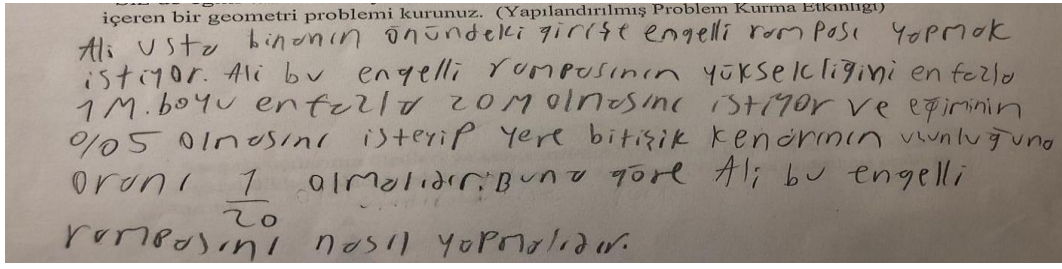 içeren bir geometri problemi kurunuz. (Yapılandırılmış Problem Kurma Etkinliği)
Ali usta binanın önündeki girişe engelli rampası yapmak
istiyor. Ali bu engelli rampasının yüksekliğini en fazla
1 M. boyu en fazla 20 M olmasını istiyor ve eğiminin
%05 olmasını isteyip yere bitişik kenarının uzunluğuna
oranı 1/20 olmalıdır. Buna göre Ali bu engelli
rampasını nasıl yapmalıdır.